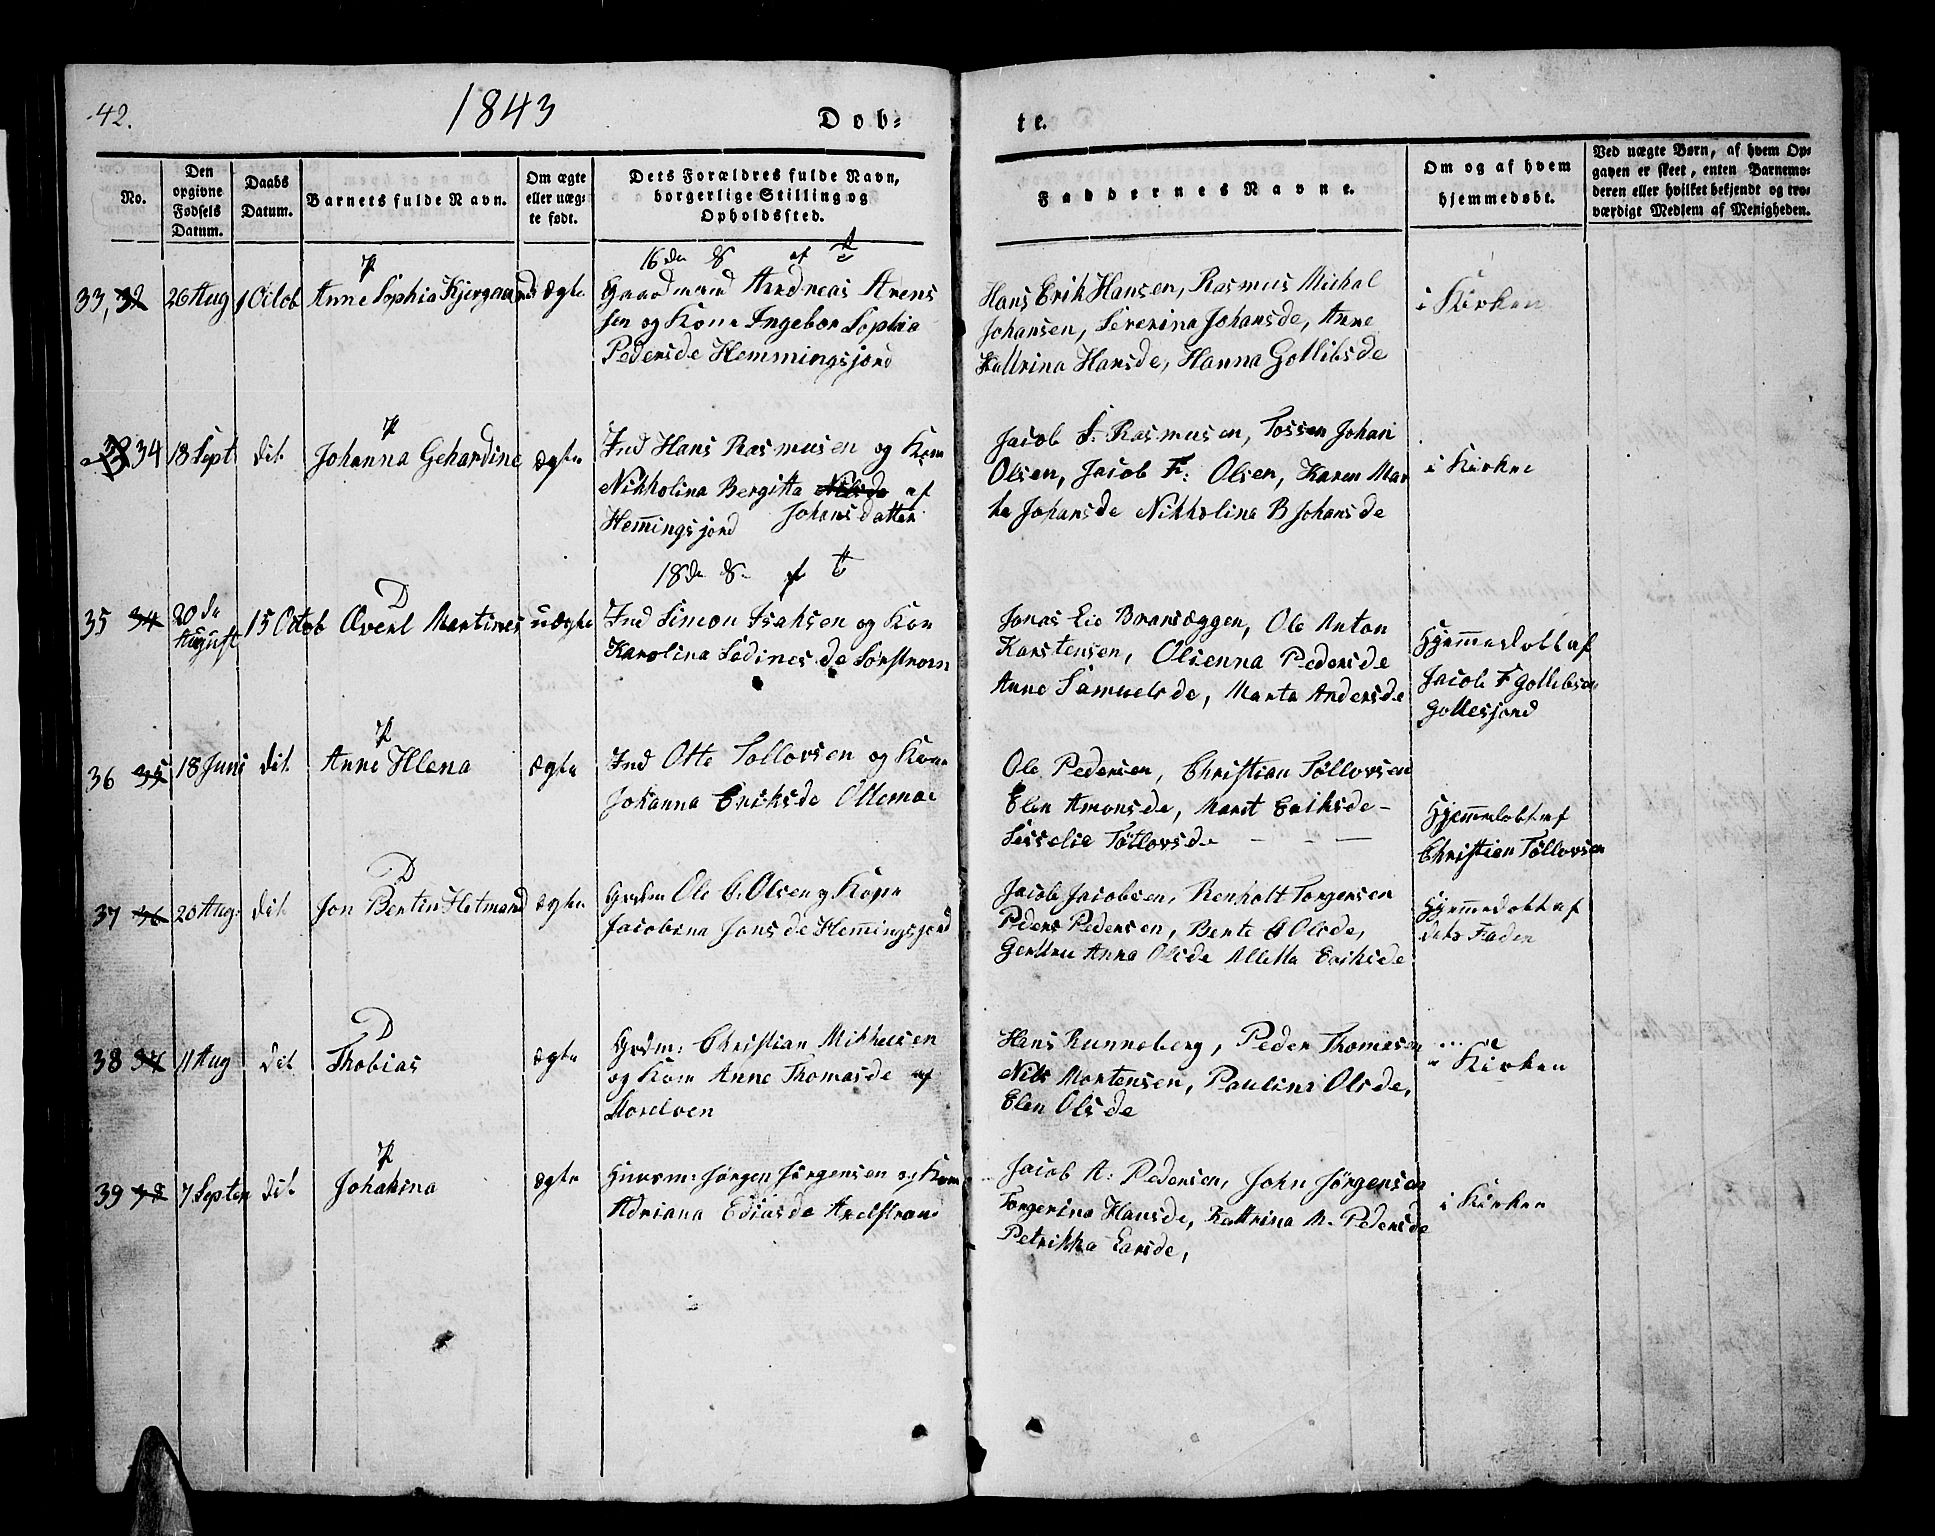 42.
1843
Døb=
te.
No.
Den opgivne Fødsels Datum.
Daabs Datum.
Barnets fulde Navn.
Om ægte eller uægte født.
Dets Forældres fulde Navn, borgerlige Stilling og Opholdssted.
Faddernes Navne.
Om og af hvem hjemmedøbt.
Ved uægte Børn, af hvem Opgaven er skeet, enten Barnemoderen eller hvilket bekjendt og troværdigt Medlem af Menigheden.
33, 32
26 Aug
1 Octob
Anne Sophia Kjergaard
ægte
Gaardmand Andreas Arens
sen og Kone Ingebor Sophia
Pedersde Hemmingsjord
Hans Erik Hansen, Rasmus Michal
Johansen, Severina Johansde, Anne
Kattrina Hansde, Hanna Gottlibsde
i Kirken
34
18 Sept
dit
Johanna Gehardine
ægte
Ind Hans Rasmusen og Kone
Nikkolina Bergitta Nilsde af
Johansdatter
Hemingsjord
Jacob S. Rasmusen, Tossen Johan
Olsen, Jacob F: Olsen, Karen Mar
the Johansde Nikkolina B Johansde
i Kirken
35 34
20de August
15 Octob
Øverl Martines
uægte
Ind Simon Isaksen og Kon
Karolina Sedinesde Sørstrøm
Jonas Eie Bransæggen, Ole Anton
Karstensen, Olienna Pedersde
Anne Samuelsde, Marta Andersde
Hjemmedøbt af
Jacob F Gottlibsen
Gottesjord
36 35
18 Juni
dit
Anne Hlena
ægte
Ind Otte Tollovsen og Kone
Johanna Eriksde
Ole Pedersen, Christian Tøllovsen
Elen Amonsde, Maret Eriksde –
Sisselie Tøllovsde
Hjemmedøbt af
Christian Tøllovsen
37 36
20 Aug.
dit
Jon Bertin Hetmand
ægte
Grdm: Ole A. Olsen og Kone
Jacobina Jonsde Hemingsjord
Jacob Jacobsen, Renholt Torgersen
Peders Pedersen, Berte G Olsde,
Gertru Anna Olsde Alletta Eriksde
Hjemmedøbt af
dets Fader
38 37
11 Aug
dit
Thobias
ægte
Grdm: Christian Mikkelsen
og Kone Anne Thomasde af
Nordeven
Hans Runneberg, Peder Thomesen
Nils Mortensen, Paulini Olsde,
Elen Olsde
i Kirken
39 38
7 Septem
dit
Johanna
ægte
Huusm: Jørgen Jørgensen og Kone
Adriana Ediasde Axelstrøm
Jacob A: Pedersen, John Jørgensen
Torgerina Hansde, Kattrina M. Pedersde
Petrikka Larsde,
i Kirken